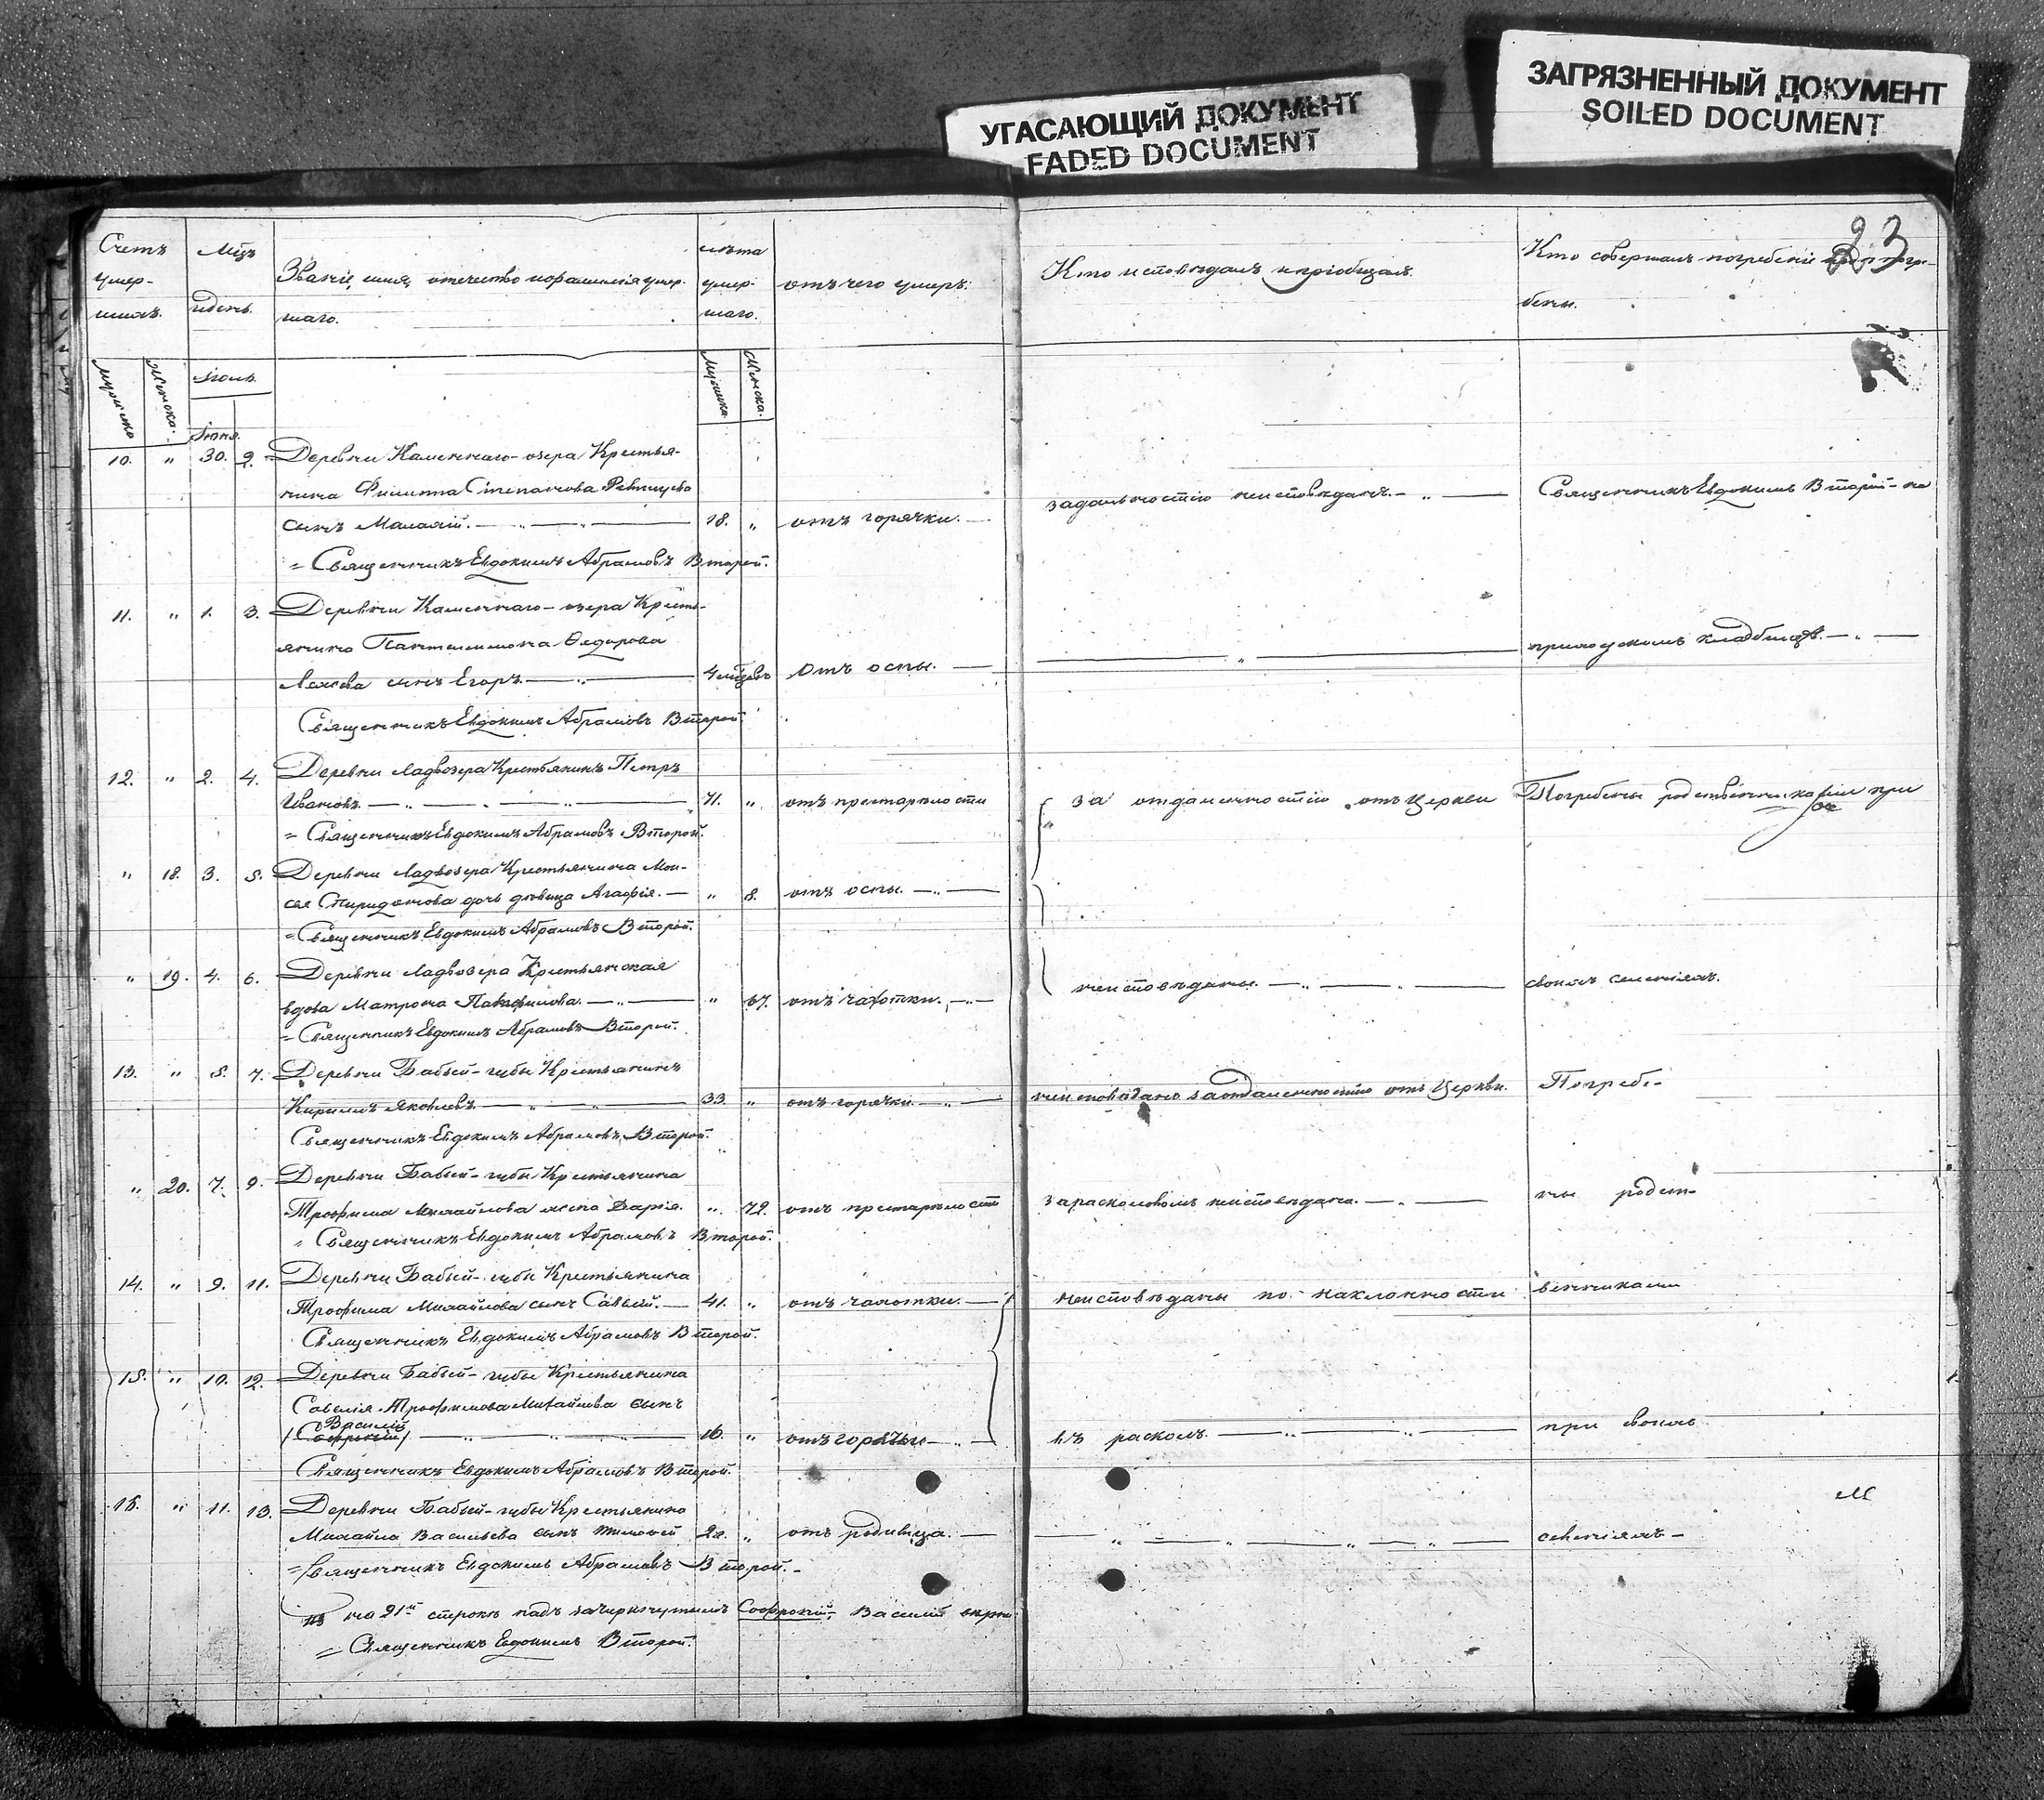 УГАСАЮЩИЙ ДОКУМЕНТ
FADED DOCUMENT
ЗАГРЯЗНЕННЫЙ ДОКУМЕНТ
SOILED DOCUMENT
23
Счетъ умер-
шихъ.
Мцъ
и день.
Званіе, имя, отечество и фамилія умер-
шаго.
лѣта
умер-
шаго.
отъ чего умеръ.
Кто исповѣдалъ и пріобщалъ.
Кто совершалъ погребеніе и гдѣ погре-
бены.
Мужска
Женска.
Іюль.
Іюня.
Мужска.
Женска.
10. " 30. 2. Деревни Каменнаго-озера Крестья-
нина Филиппа Степанова
сынъ Малахій. 18. " отъ горячки. за дальностію неисповѣданъ. Священникъ Евдокимъ Второй - на
= Священникъ Евдокимъ Абрамовъ Второй.
11. " 1. 3. Деревни Каменнаго-озера Кресть-
янина Пантелеимона Ѳедорова
сынъ Егоръ. 4 отъ оспы. " приходскомъ кладбищѣ.
Священникъ Евдокимъ Абрамовъ Второй.
12. " 2. 4. Деревни Ладвозера Крестьянинъ Петръ
Ивановъ. 71. " отъ престарѣлости за отдаленностію отъ Церкви Погребены родственниками при
= Священникъ Евдокимъ Абрамовъ Второй.
" 18. 3. 5. Деревни Ладвозера Крестьянина Мои-
сея Спиридонова дочь дѣвица Агафія. " 8. отъ оспы.
= Священникъ Евдокимъ Абрамовъ Второй.
" 19. 4. 6. Деревни Ладвозера Крестьянская
вдова Матрона Панфилова. " 67. отъ чахотки. неисповѣданы. своихъ селеніяхъ.
= Священникъ Евдокимъ Абрамовъ Второй.
13. " 5. 7. Деревни Бабьей-губы Крестьянинъ
Кириллъ Яковлевъ. 33. " отъ горячки. неисповѣданъ за отдаленностію отъ Церкви. Погребе-
Священникъ Евдокимъ Абрамовъ Второй.
" 20. 7. 9. Деревни Бабьей-губы Крестьянина
Трофима Михайлова жена Дарія. " 72. отъ престарѣлости за расколомъ неисповѣдана. ны родст-
" Священникъ Евдокимъ Абрамовъ Второй.
14. " 9. 11. Деревни Бабьей-губы Крестьянина
Трофима Михайлова сынъ Савелій. 41. " отъ чахотки. неисповѣданы по наклонности венниками
Священникъ Евдокимъ Абрамовъ Второй.
15. " 10. 12. Деревни Бабьей-губы Крестьянина
Савелія Трофимова Михайлова сынъ
Василій
(Софроній) 16. " отъ горячки въ расколъ. при своихъ
Священникъ Евдокимъ Абрамовъ Второй.
16. " 11. 13. Деревни Бабьей-губы Крестьянина
Михайла Васильева сынъ Тимофей 20. " отъ родимца. " селеніяхъ -
= Священникъ Евдокимъ Абрамовъ Второй.
на 21й строкѣ надъ зачеркнутымъ Софроній, Василій
= Священникъ Евдокимъ Второй.